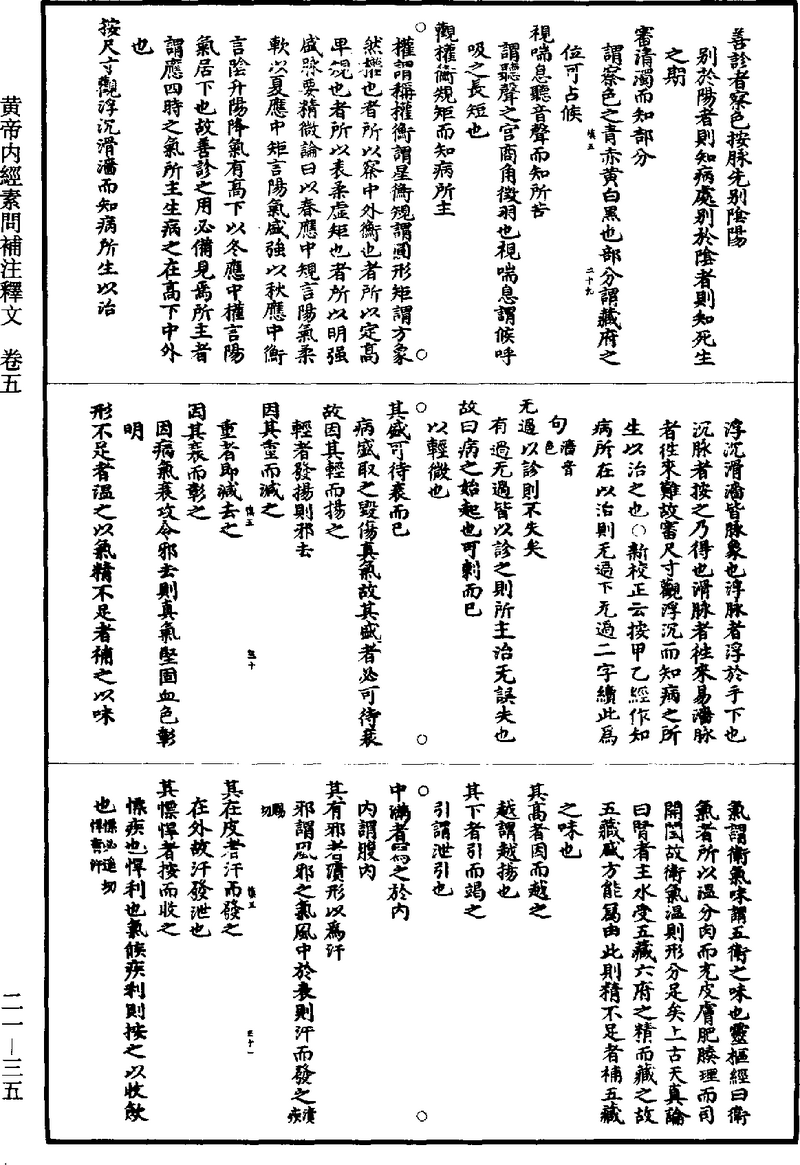 黄帝内經素問補注釋文 卷五
二一—三五
善診者察色按脉先别陰陽
别於陽者則知病處别於陰者則知死生
之期
審清濁而知部分
謂察色之青赤黄白黑也部分謂藏府之
位可占候
視喘息聽音聲而知所苦
謂聽聲之宫商角徵羽也視喘息謂候呼
吸之長短也
觀權衡規矩而知病所主
權謂稱權衡謂星衡規謂圓形矩謂方象
然權也者所以察中外衡也者所以定高
卑規也者所以表柔虛矩也者所以明强
盛脉要精微論曰以春應中規言陽氣柔
軟以夏應中矩言陽氣盛强以秋應中衡
言陰升陽降氣有高下以冬應中權言陽
氣居下也故善診之用必備見焉所主者
謂應四時之氣所主生病之在高下中外
也
按尺寸觀浮沉滑濇而知病所生以治
浮沉滑濇皆脉象也浮脉者浮於手下也
沉脉者按之乃得也滑脉者徃來易濇脉
者徃來難故審尺寸觀浮沉而知病之所
生以治之也○新校正云按甲乙經作知
病所在以治則无過下无過二字續此爲
句 濇音色
无過以診則不失矣
有過无過皆以診之則所主治无誤失也
故曰病之始起也可刺而已
以輕微也
其盛可待衰而已
病盛取之毀傷真氣故其盛者必可待衰
故因其輕而揚之
輕者發揚則邪去
因其重而減之
重者即減去之
因其衰而彰之
因病氣衰攻令邪去則真氣堅固血色彰
明
形不足者温之以氣精不足者補之以味
氣謂衛氣味謂五衛之味也靈樞經曰衛
氣者所以温分肉而充皮膚肥腠理而司
開闔故衛氣温則形分足矣上古天真論
曰腎者主水受五藏六府之精而藏之故
五藏盛方能寫由此則精不足者補五藏
之味也
其高者因而越之
越謂越揚也
其下者引而竭之
引謂泄引也
中滿者寫之於内
内謂腹内
其有邪者漬形以爲汗
邪謂風邪之氣風中於表則汗而發之 漬疾賜切
其在皮者汗而發之
在外故汗發泄也
其慓悍者按而收之
慓疾也悍利也氣候疾利則按之以收斂
也 慓必遥切悍音汗